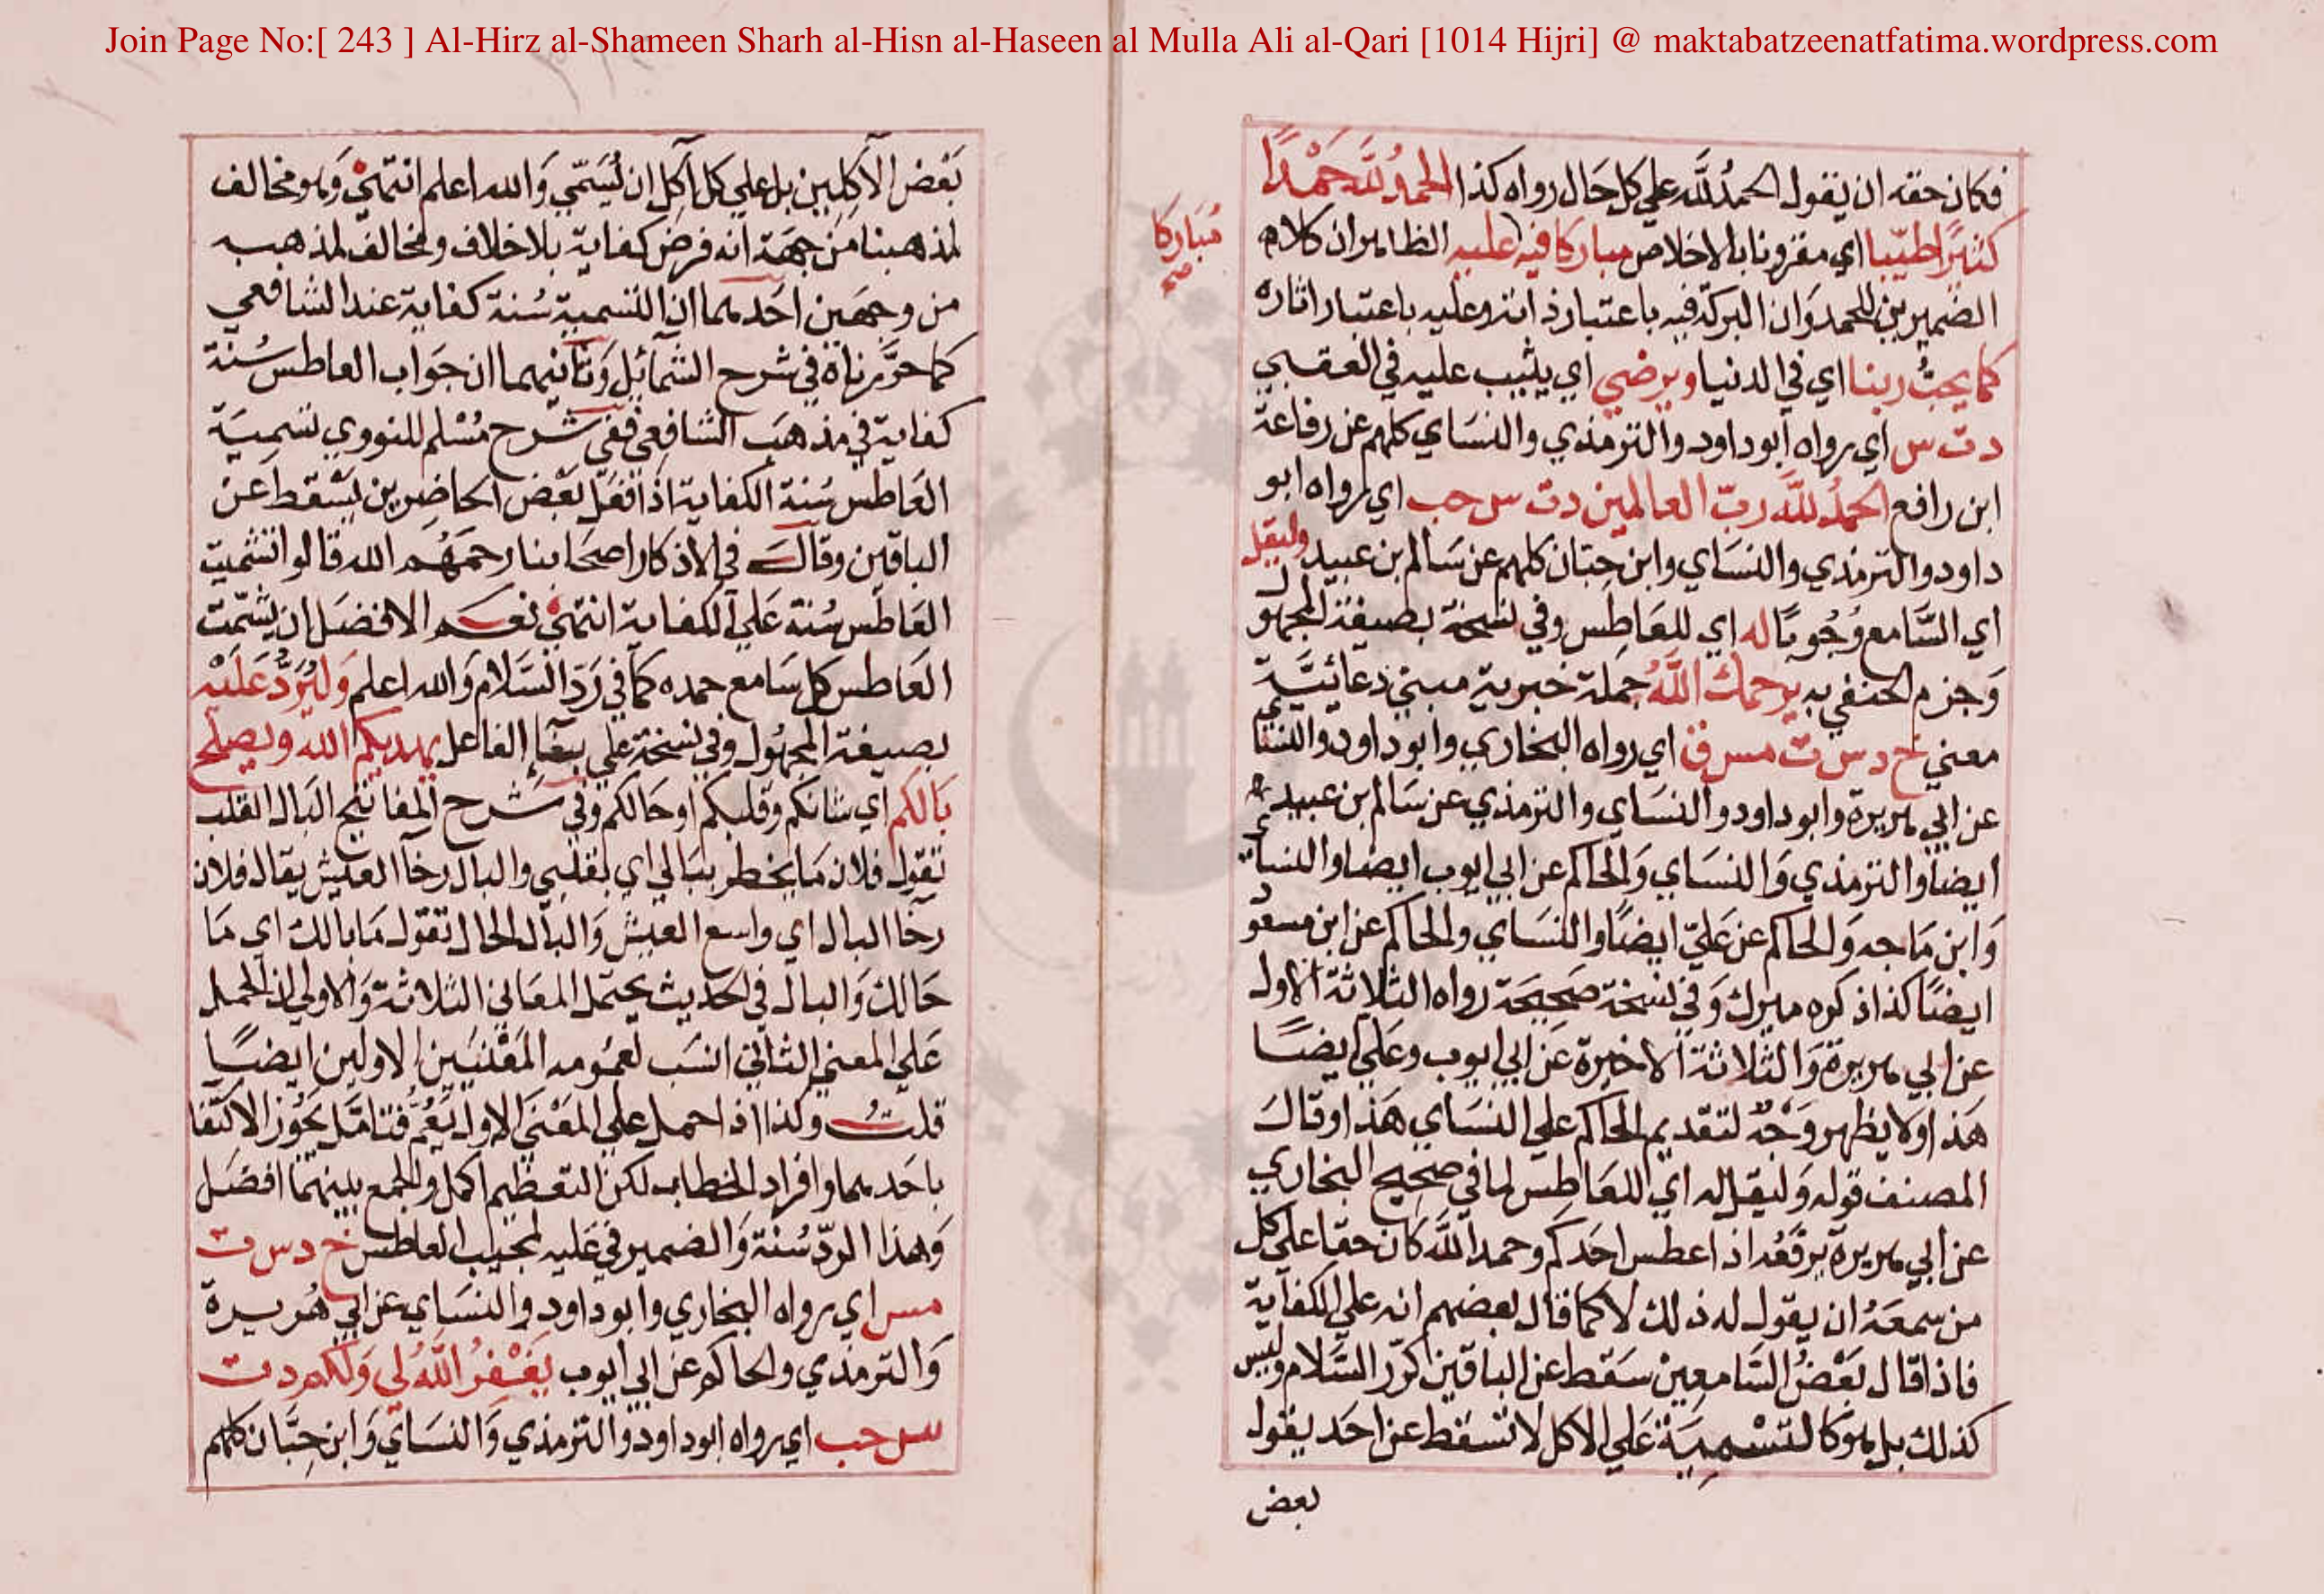 Join Page No:[ 243 ] Al-Hirz al-Shameen Sharh al-Hisn al-Haseen al Mulla Ali al-Qari [1014 Hijri] @ maktabatzeenatfatima.wordpress.com
فكان حقه ان يقول الحمدُ للَّه علي كل حَال رواه كذا الحمدُ للَّه حَمْدًا
كثيرًا طيّبا اي مقرونا بالاخلاص مباركا فيه عليه الظاهر ان كلام
مُبَاركا
صح
الضميرين للحمد وَان البركة فيه باعتبار ذاته وعليه باعتبار اثاره
كما يحبُّ ربنا اي في الدنيا ويرضي اي يثيب عليه في العقبي
د ت س اي رواه ابو داود والترمذي والنسَاي كلهم عن رفاعة
ابن رافع الحمدُ للَّه ربّ العالمين د ت س حب اي رواه ابو
داود والترمذي والنسَاي وابن حبّان كلهم عن سَالم بن عبيد وليقل
اي السَّامع وُجُوبًا له اي للعَاطِس وفي نسخة بصيغة المجهول
وَجزم الحنفي به يرحمك اللَّهُ جملة خبرية مبني دعائيَّة
معني خ د س ت مس ق اي رواه البخاري وابو داود والنسَاي
عن ابي هريرة وابو داود والنسَاي والترمذي عن سَالم بن عبيد
ايضا والترمذي وَالنسَاي وَالحاكم عن ابي ايوب ايضا والنساي
وَابن مَاجه وَالحاكم عن عَليّ ايضًا والنسَاي والحاكم عن ابن مسعود
ايضًا كذا ذكره ميرك وَفي نسخة صَحيحَة رواه الثلاثة الاول
عن ابي هريرة وَالثلاثة الاخيرة عَن ابي ايوب وعَلي ايضًا
هَذا ولا يظهر وَجْهٌ لتقديم الحاكم علي النسَاي هَذا وقالَ
المصنف قوله وَليقل له اي للعَاطِس لما في صَحيح البخاري
عن ابي هريرة يرفَعُه اذا عطس احَدكم وحمد اللَّه كان حقا علي كل
من سمعَهُ ان يقول له ذلك لا كما قال بعضهم انه علي الكفاية
فاذا قال بَعْضُ السَّامعِين سَقط عن الباقين كردّ السَّلام وليس
كذلك بل هو كالتسْميَة عَلي الاكل لا تسقط عن احَد يقول
بعض
بَعْض الآكِلين بل علي كل آكل ان يُسَمّي وَالله اعلم انتهي وَهو مخالف
لمذهبنا مَن جهَة انه فرض كفاية بلا خلاف ومخالف لمذهبه
من وجهَين احَدهما ان التسمية سُنة كفاية عند الشافعي
كما حرّرناهُ في شرح الشمائل وَثانيهما ان جوَاب العاطس سُنة
كفاية في مذهَب الشافعي ففي شرح مُسْلم للنووي تسميَة
العَاطس سُنة الكفاية اذا فعَل بَعْض الحاضِرين يسْقط عَن
الباقين وقالَ في الاذكار اصحَابنا رحمَهُم الله قالوا تشميت
العَاطس سُنة عَلي الكفاية انتهي نعَم الافضَل ان يشمّت
العَاطس كل سَامع حمده كما في رَدّ السَّلام وَالله اعلم وَليُرَدَّ عَلَيْه
بصيغة المجهُول وفي نسخة علي بنَاء الفاعل يهديكم الله ويصلح
بَالكم اي شانكم وقلبكم او حَالكم وفي شرح المفاتيح البَال القلب
تقول فلان مَا يخطر ببَالي اي بقلبي والبال رخاء العَيش يقال فلان
رخا البال اي واسع العيش وَالبال الحال تقول مَا بالك اي مَا
حَالك وَالبال في الحَديث يحتمل المعَاني الثلاثة وَالاولي ان الحمل
عَلي المعني الثاني انسَب لعمُومه المَعْنيَين الاولين ايضًا
قلتُ وكذا اذا حمل علي المعْنَي الاول يَعُمّ فتامَّل يجُوز الاكتفا
باحَدهما وافراد الخطاب لكن التعظيم اكمل والجمع بينهما افضَل
وَهذا الردّ سُنة وَالضمير في عَليه لمجيب العاطس خ د س ت
مس اي رواه البخاري وابو داود والنسَاي عن ابي هُريرة
وَالترمذي والحاكم عن ابي ايوب يَغْفرُ اللَّهُ لي وَلكم د ت
س حب اي رواه ابو داود والترمذي وَالنسَاي وَابن حِبَّان كلهم